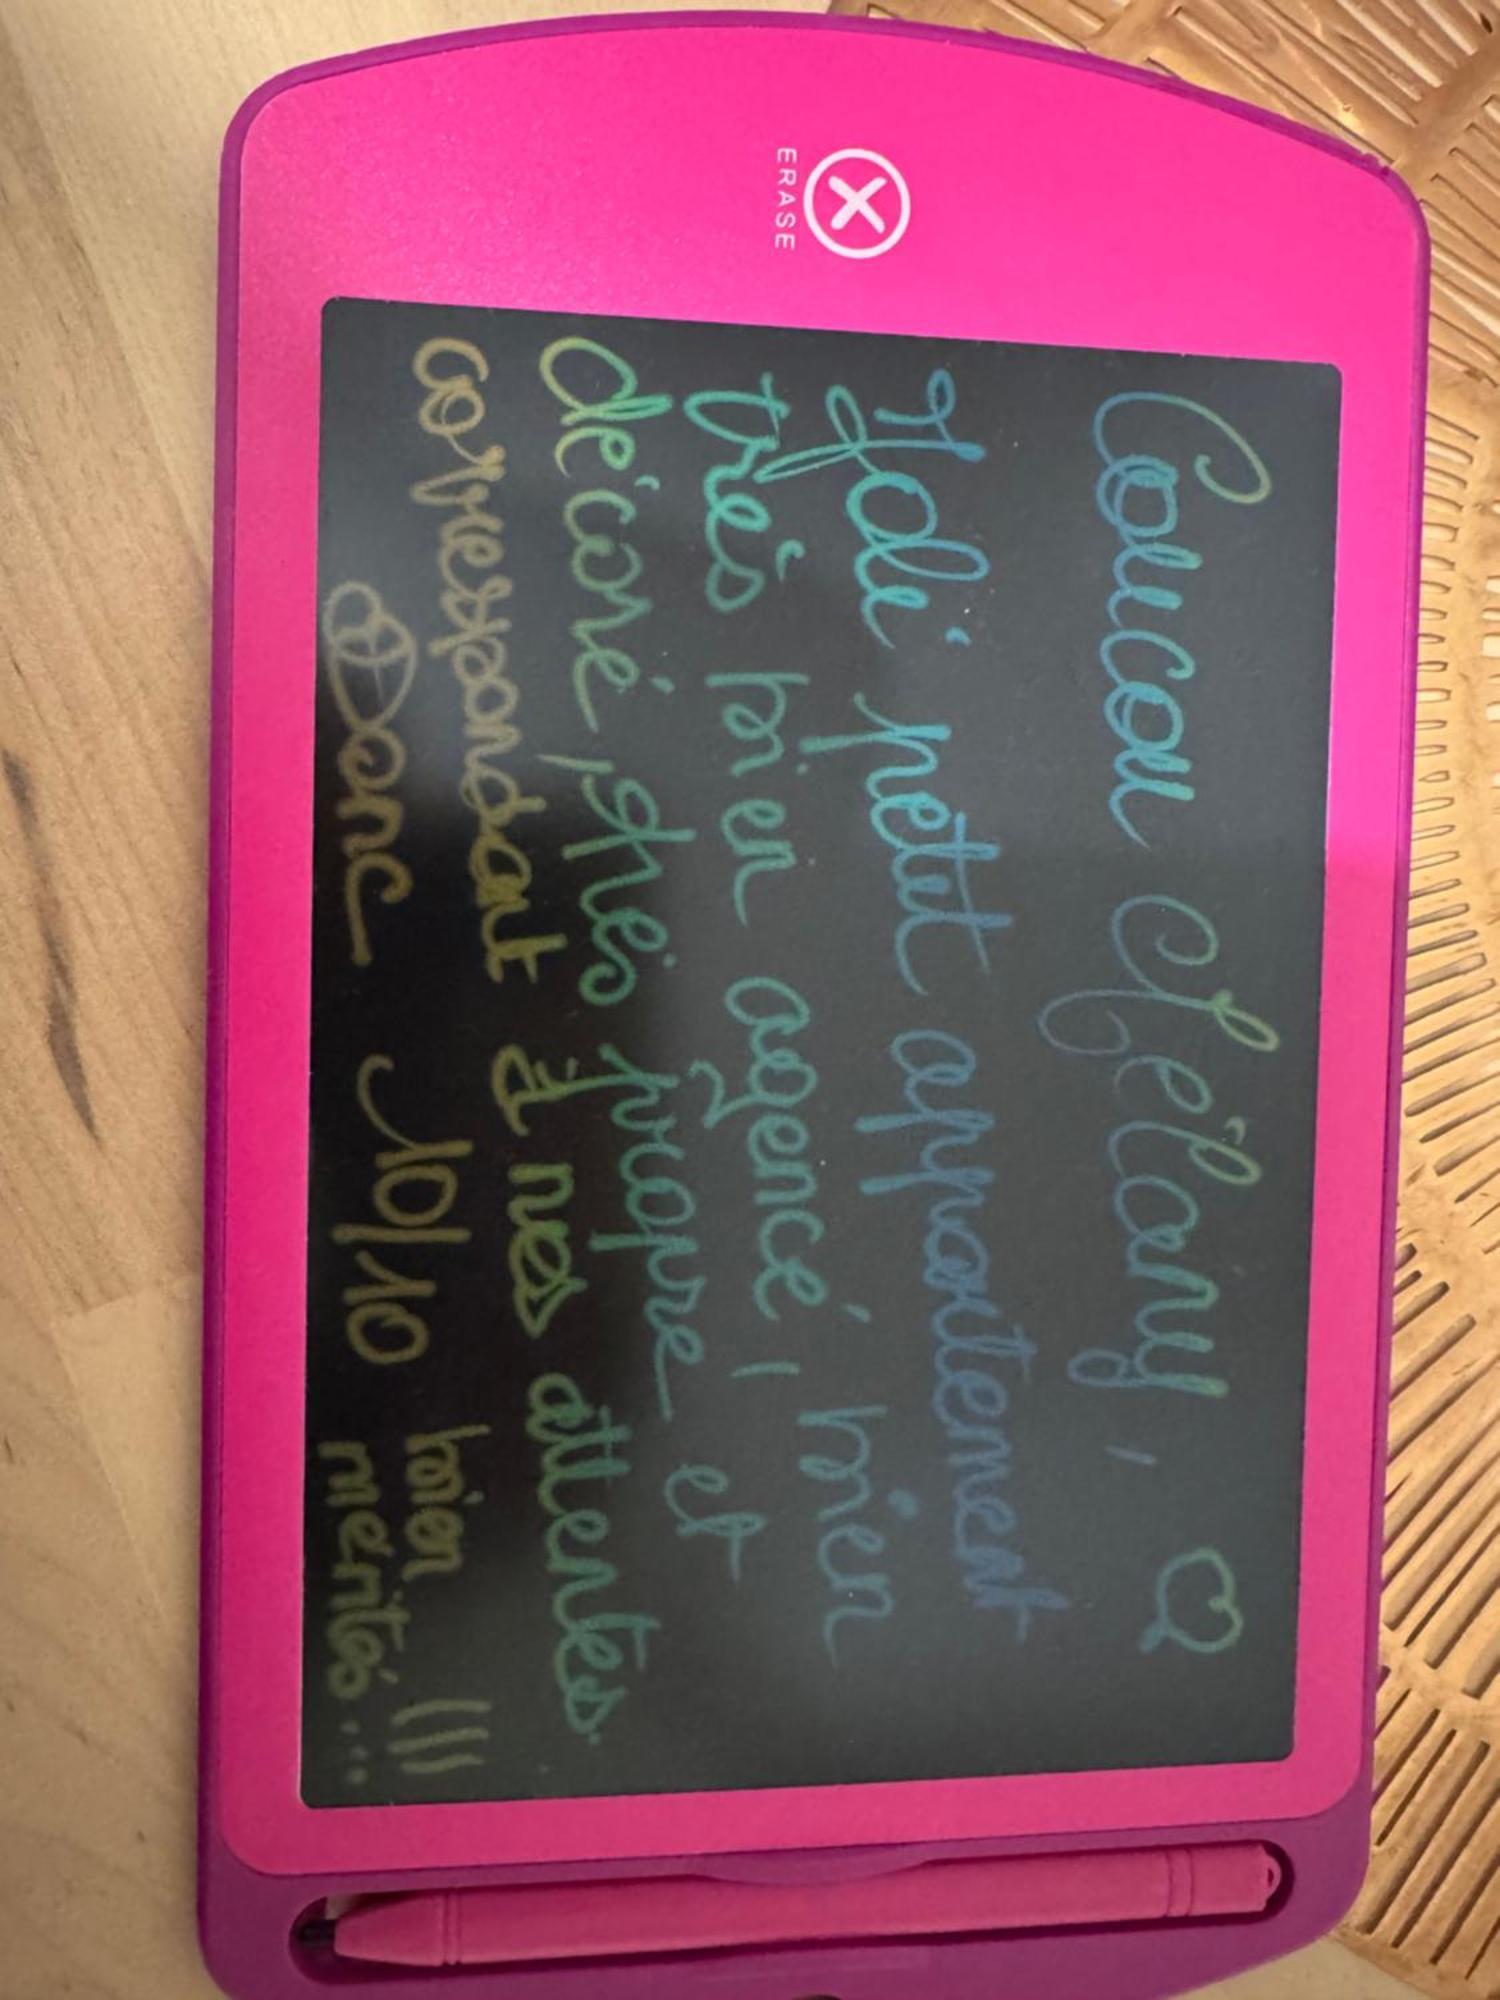 ERASE
Coucou Mélany, ♡
Joli petit appartement
très bien agencé, bien
décoré, très propre et
correspondant à nos attentes.
Donc 10/10 bien !!!
mérités...